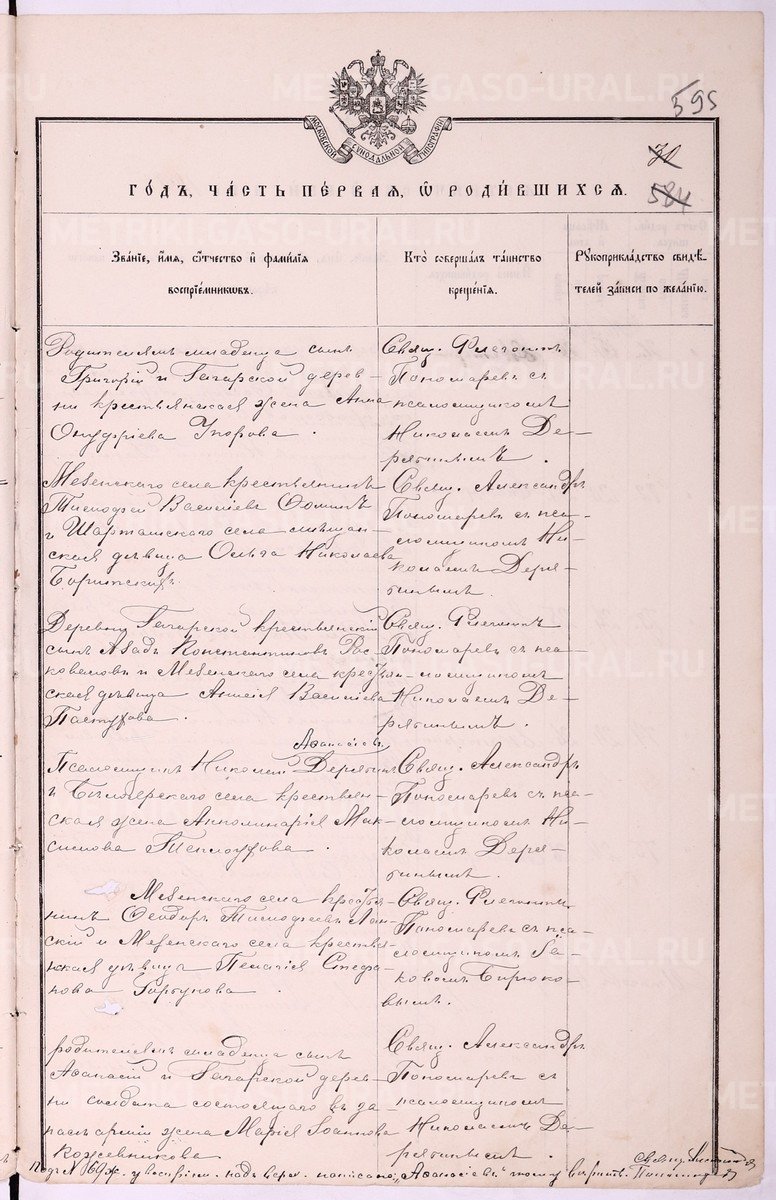 595
584
МОСКОВСКОЙ СѴНОДАЛЬНОЙ ТИПОГРАФІИ
ГОДЪ, ЧАСТЬ ПЕРВАЯ, Ѿ РОДИВШИХСЯ.
Званіе, имя, отчество и фамилія
воспріемниковъ.
Кто совершалъ таинство
крещенія.
Рукоприкладство свидѣ-
телей записи по желанію.
Родителямъ младенца сынъ
Григорій и Гагарской дерев-
ни крестьянская жена Анна
Онуфріева
Свящ. Флегонтъ
Пономаревъ съ
псаломщикомъ
Николаемъ Де-
рябинымъ.
Мезенскаго села крестьянинъ
Тимофей Васильевъ Ѳоминъ
и Шарташскаго села мѣщан-
ская дѣвица Ольга Николаева
Свящ. Александръ
Пономаревъ съ пса-
ломщикомъ Ни-
колаемъ Деря-
бинымъ.
Деревни Гагарской крестьянскій
сынъ Константиновъ Рас-
коваловъ и Мезенскаго села кресть-
янская дѣвица Васильева
Пастухова.
Свящ. Флегонтъ
Пономаревъ съ пса-
ломщикомъ
Николаемъ Де-
рябинымъ.
Аѳанасіевъ
Псаломщикъ Николай Дерябинъ
и села крестьян-
ская жена Апполинарія Мак-
симова Теплоухова.
Свящ. Александръ
Пономаревъ съ пса-
ломщикомъ Ни-
колаемъ Деря-
бинымъ.
Мезенскаго села кресть-
нинъ Ѳеодоръ Тимофеевъ
и Мезенскаго села крестья-
нская дѣвица Пелагія Стефа-
нова Горбунова.
Свящ. Флегонтъ
Пономаревъ съ пса-
ломщикомъ Іа-
ковомъ Бирюко-
вымъ.
родителямъ младенца сынъ
Аѳанасій и Гагарской дерев-
ни солдата состоящаго въ за-
пасѣ арміи жена Марія Іоаннова
Кожевникова
Свящ. Александръ
Пономаревъ съ
псаломщикомъ
Николаемъ Де-
рябинымъ.
Подъ № 69 у воспріем. надъ верх. написано „Аѳанасіевъ" тому вѣрить.